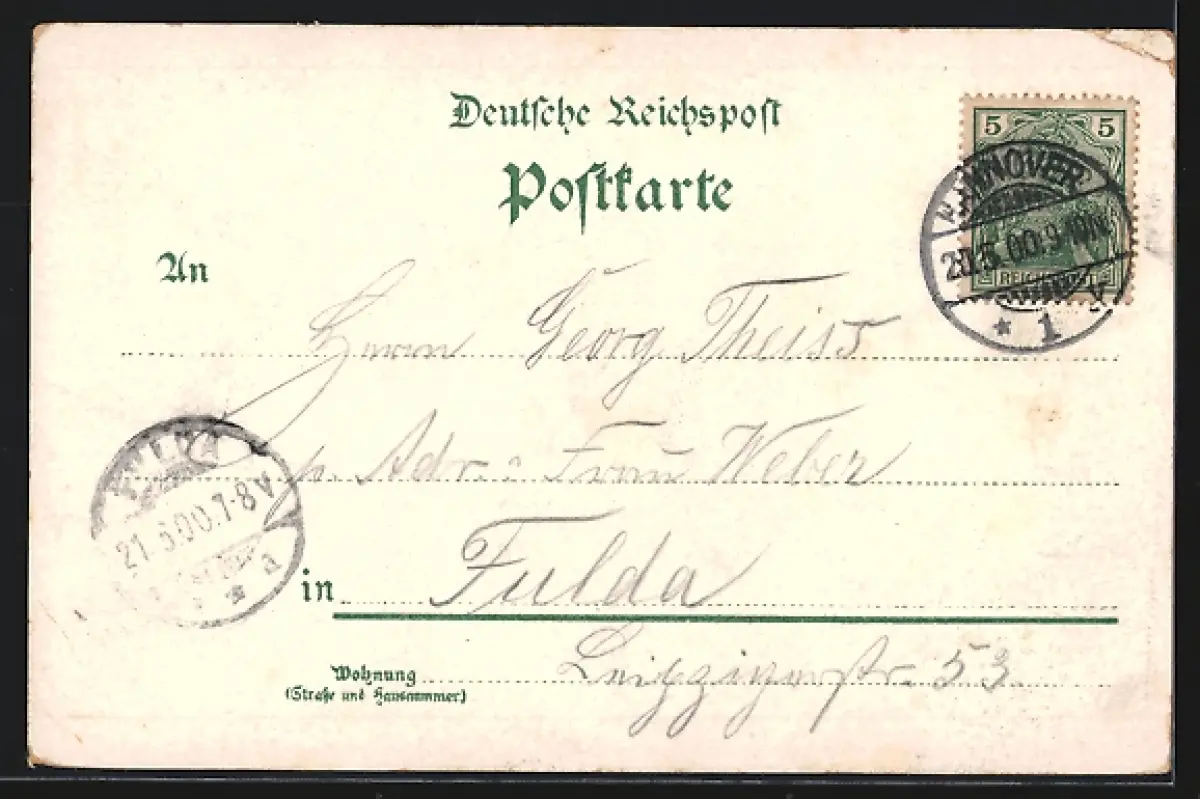 Deutsche Reichspost
Postkarte
5 5
HANNOVER
20.5.00.9-10N.
REICHSPOST
* 1 v
An
Herrn Georg Theiss
p. Adr.: Frau Weber
FULDA
21.5.00.7-8V.
* a
in Fulda
Wohnung Leipzigerstr. 53
(Straße und Hausnummer)